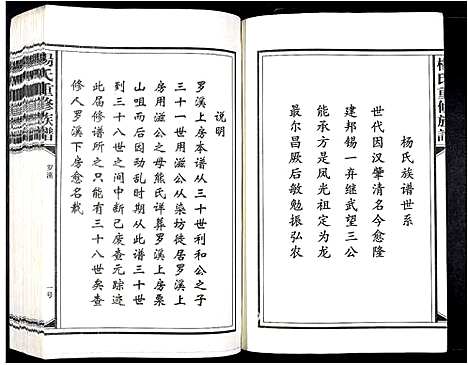 楊氏重修族譜
杨氏族谱世系
世代因汉肇清名今愈隆
建邦锡一弃继武望三公
能承方是凤光祖定为龙
最尔昌厥后敏勉振弘农
说明
罗溪上房本谱从三十世利和公之子
三十一世用滋公从染坊徒居罗溪上
房用滋公之母熊氏详葬罗溪上房栗
山咀而后因动乱时期从此谱三十世
到三十八世之间中断已废查元踪迹
此届修谱所之只能有三十八世矣查
修人罗溪下房愈名裁
楊氏重修族譜
罗溪
一号